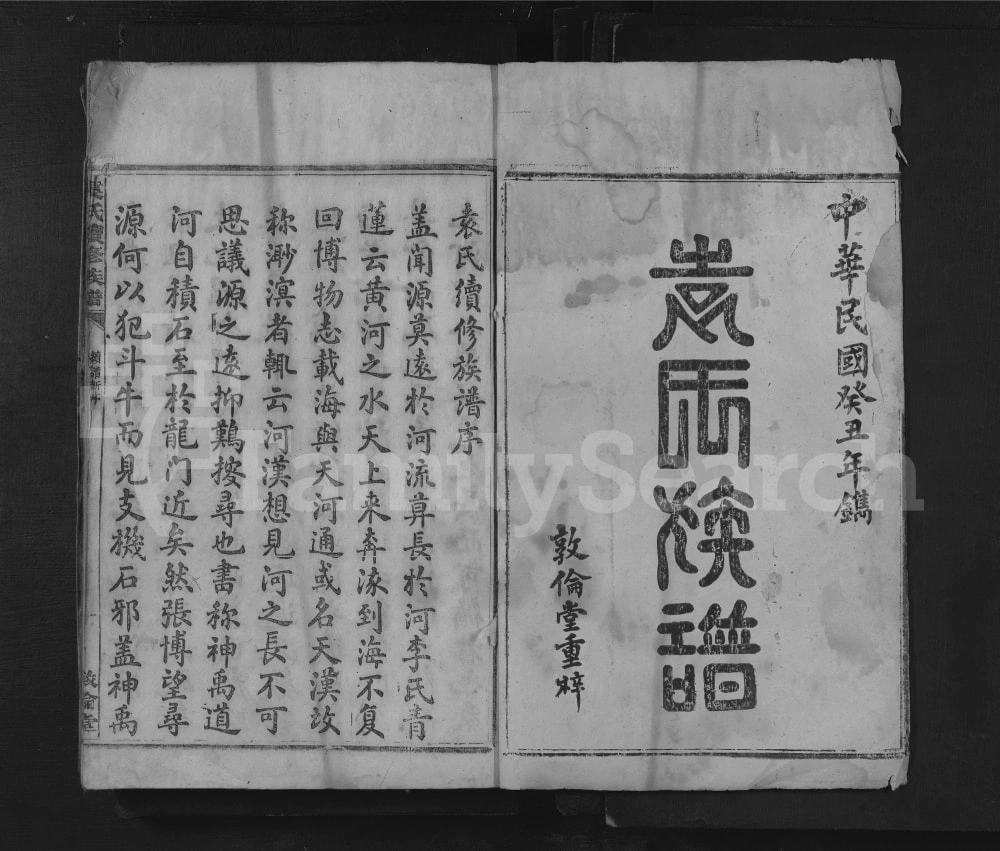 中華民國癸丑年鐫
袁氏族譜
敦倫堂重梓
袁氏續修族譜序
盖聞源莫遠於河流莫長於河李氏青
蓮云黄河之水天上来奔流到海不复
回博物志載海與天河通或名天漢故
称渺溟者輒云河漢想見河之長不可
思議源之遠抑難按尋也書称神禹道
河自積石至於龍门近矣然張博望尋
源何以犯斗牛而見支機石邪盖神禹
袁氏續修族譜
敦倫堂
FamilySearch